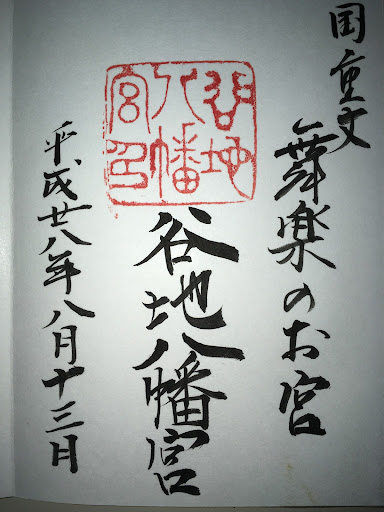 国重文
舞楽のお宮
谷地八幡宮
谷地八幡宮印
平成廿八年八月十三日